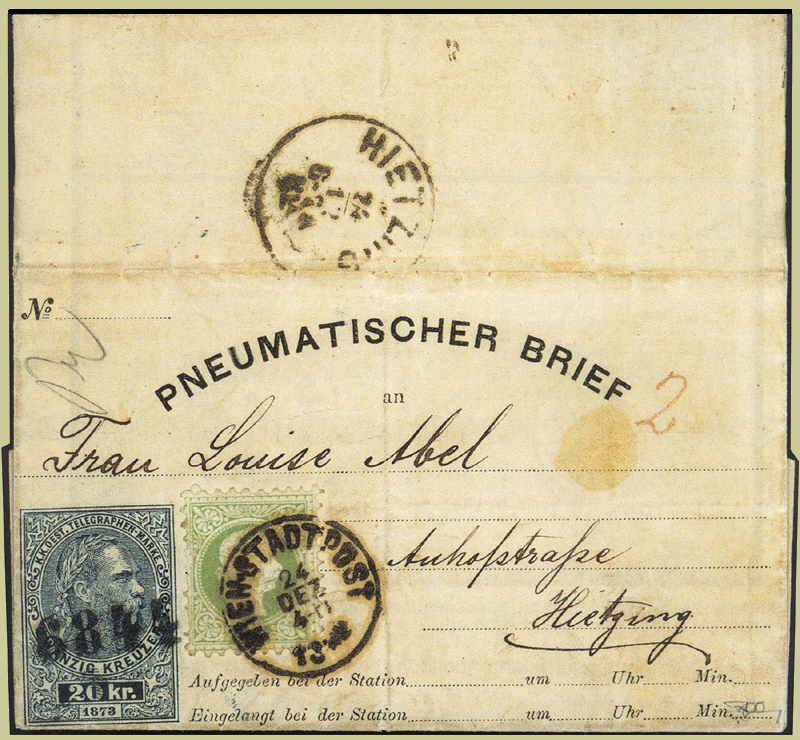 HIETZING
24
12
No
PNEUMATISCHER BRIEF 2
an
Frau Louise Abel
Auhofstraße
Hietzing
K.K. OEST. TELEGRAPHEN-MARKE
6844
ZWANZIG KREUZER
20 kr.
1873
WIEN-STADTPOST
24
DEZ
13
Aufgegeben bei der Station um Uhr Min.
Eingelangt bei der Station um Uhr Min.